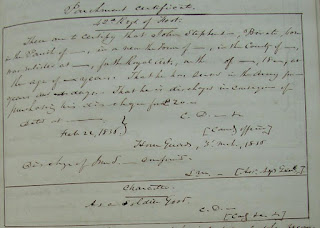 Parchment Certificate.
42d Regt of Foot.
These are to Certify that John Stephens —, Private, born
in the Parish of —, in or near the Town of —, in the County of —,
was enlisted at —, for the Royal Regt, on the — of —, 18—, at
the age of — years. That he has served in the Army for —
years and — days. That he is discharged in consequence of
purchasing his discharge for £20 =
Dated at —
Feb. 26, 1838. }
C. D. —
[Comdg officer]
Horse Guards, 3d Mch. 1838
Discharge of J. S. — confirmed.
Character.
As a Soldier Good.
C. D. —